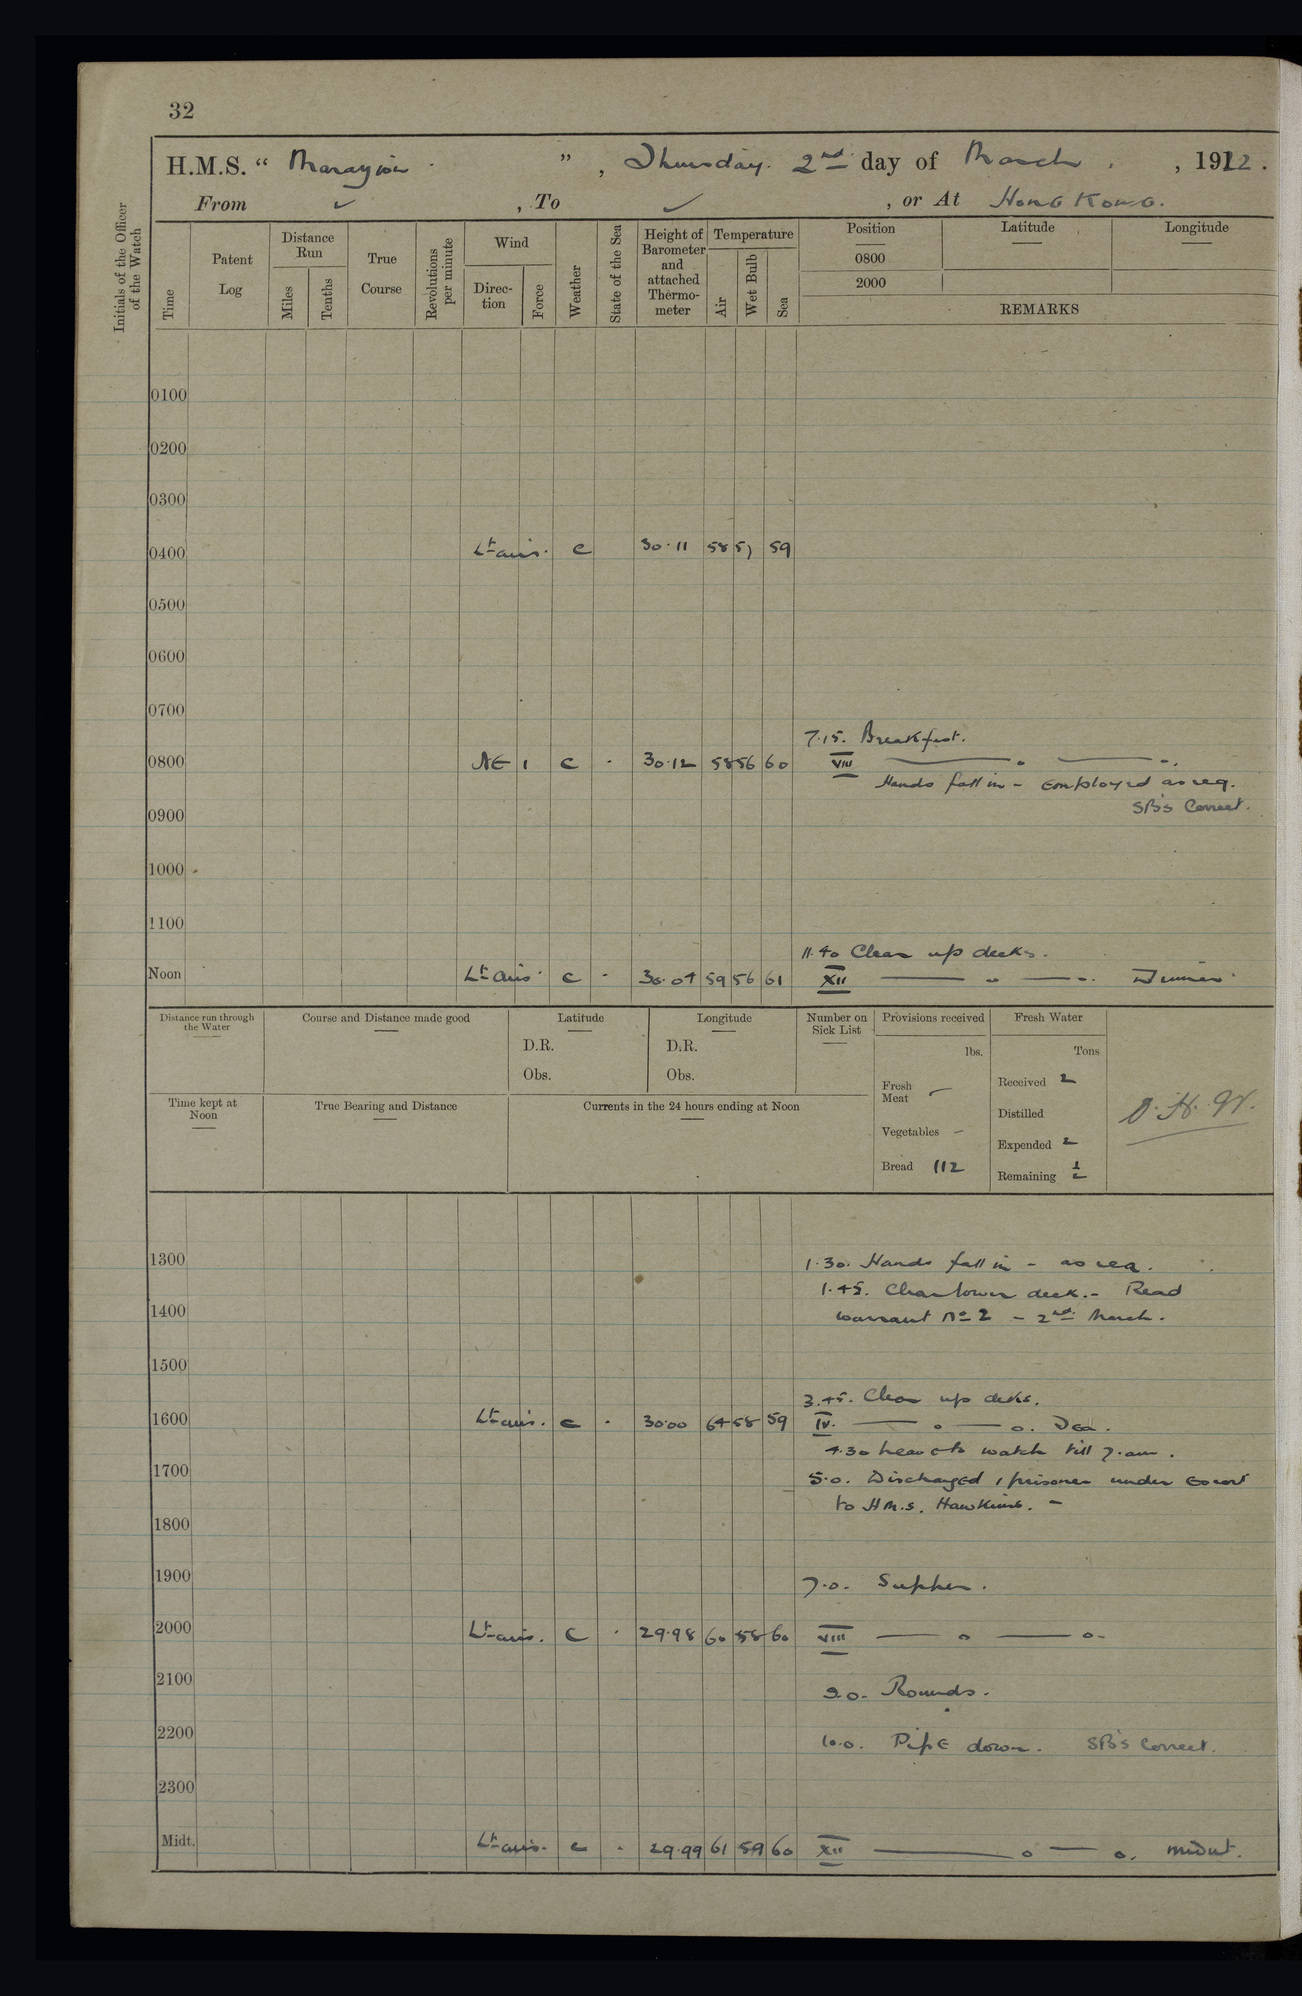 32
H.M.S. " Marazion ", Thursday. 2nd day of March, 1922.
From ✓, To ✓, or At Hong Kong.
Initials of the Officer of the Watch
Time
Patent Log
Distance Run
Miles
Tenths
True Course
Revolutions per minute
Wind
Direction
Force
Weather
State of the Sea
Height of Barometer and attached Thermometer
Temperature
Air
Wet Bulb
Sea
Position
0800
2000
Latitude
Longitude
REMARKS
0100
0200
0300
0400 Lt airs. c 30.11 58 57 59
0500
0600
0700
7.15. Breakfast.
0800 NE 1 c - 30.12 58 56 60 VIII
Hands fall in - employed as req.
SB's Correct.
0900
1000
1100
11.40 Clear up decks.
Noon Lt airs c - 30.04 59 56 61 XII Dinner
Distance run through the Water
Course and Distance made good
Latitude
D.R.
Obs.
Longitude
D.R.
Obs.
Number on Sick List
Provisions received
lbs.
Fresh Meat -
Vegetables -
Bread 112
Fresh Water
Tons
Received 2
Distilled
Expended 2
Remaining 1/2
Time kept at Noon
True Bearing and Distance
Currents in the 24 hours ending at Noon
1300
1.30. Hands fall in - as req.
1.45. Clear lower deck. - Read
1400
warrant No 2 - 2nd March.
1500
3.45. Clear up decks.
1600 Lt airs. c - 30.00 64 58 59 IV. Tea.
4.30 watch till 7.am.
1700
5.0. Discharged 1 prisoner under Escort
to H.M.S. Hawkins. -
1800
1900
7.0. Supper.
2000 Lt airs. c - 29.98 60 58 60 VIII
2100
9.0. Rounds.
2200
10.0. Pipe down. SB's Correct.
2300
Midt. Lt airs. c - 29.99 61 59 60 XII Midnt.